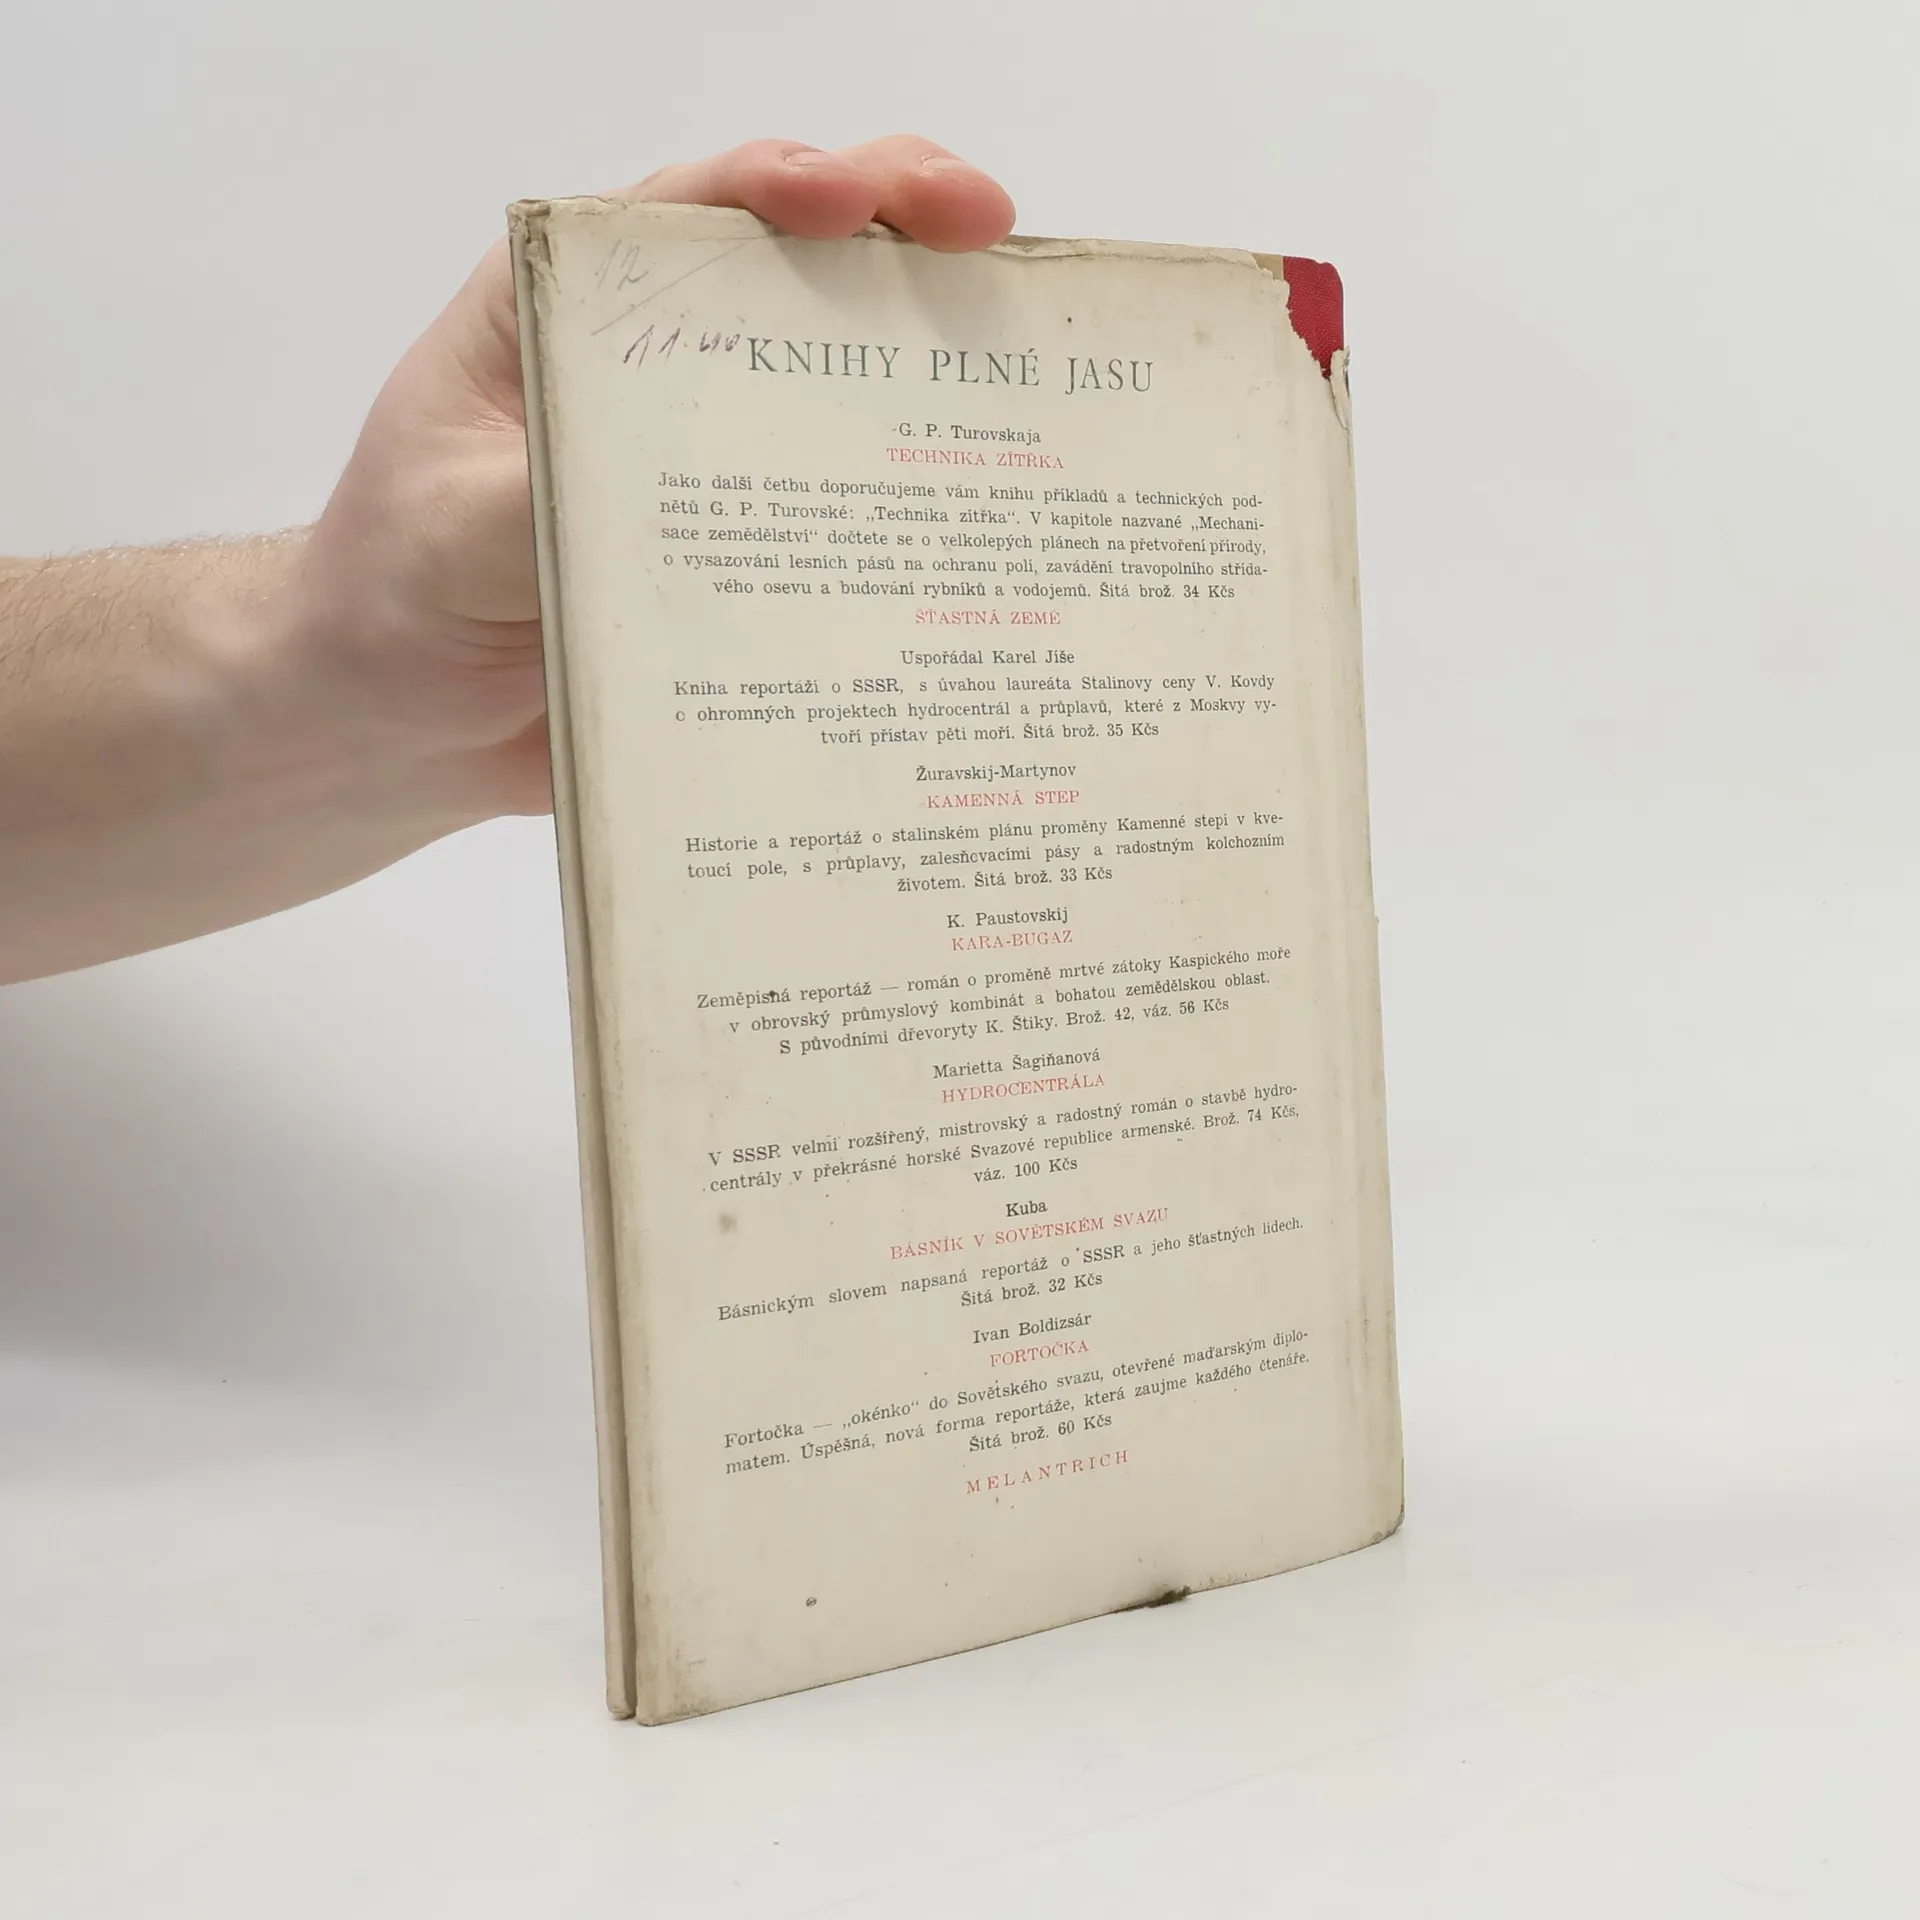 12
11.40
KNIHY PLNÉ JASU
G. P. Turovskaja
TECHNIKA ZÍTŘKA
Jako další četbu doporučujeme vám knihu příkladů a technických pod-
nětů G. P. Turovské: „Technika zítřka“. V kapitole nazvané „Mechani-
sace zemědělství“ dočtete se o velkolepých plánech na přetvoření přírody,
o vysazování lesních pásů na ochranu polí, zavádění travopolního střída-
vého osevu a budování rybníků a vodojemů. Šitá brož. 34 Kčs
ŠŤASTNÁ ZEMĚ
Uspořádal Karel Jíše
Kniha reportáží o SSSR, s úvahou laureáta Stalinovy ceny V. Kovdy
o ohromných projektech hydrocentrál a průplavů, které z Moskvy vy-
tvoří přístav pěti moří. Šitá brož. 35 Kčs
Žuravskij-Martynov
KAMENNÁ STEP
Historie a reportáž o stalinském plánu proměny Kamenné stepi v kve-
toucí pole, s průplavy, zalesňovacími pásy a radostným kolchozním
životem. Šitá brož. 33 Kčs
K. Paustovskij
KARA-BUGAZ
Zeměpisná reportáž — román o proměně mrtvé zátoky Kaspického moře
v obrovský průmyslový kombinát a bohatou zemědělskou oblast.
S původními dřevoryty K. Štiky. Brož. 42, váz. 56 Kčs
Marietta Šagiňanová
HYDROCENTRÁLA
V SSSR velmi rozšířený, mistrovský a radostný román o stavbě hydro-
centrály v překrásné horské Svazové republice armenské. Brož. 74 Kčs,
váz. 100 Kčs
Kuba
BÁSNÍK V SOVĚTSKÉM SVAZU
Básnickým slovem napsaná reportáž o SSSR a jeho šťastných lidech.
Šitá brož. 32 Kčs
Ivan Boldizsár
FORTOČKA
Fortočka — „okénko“ do Sovětského svazu, otevřené maďarským diplo-
matem. Úspěšná, nová forma reportáže, která zaujme každého čtenáře.
Šitá brož. 60 Kčs
MELANTRICH